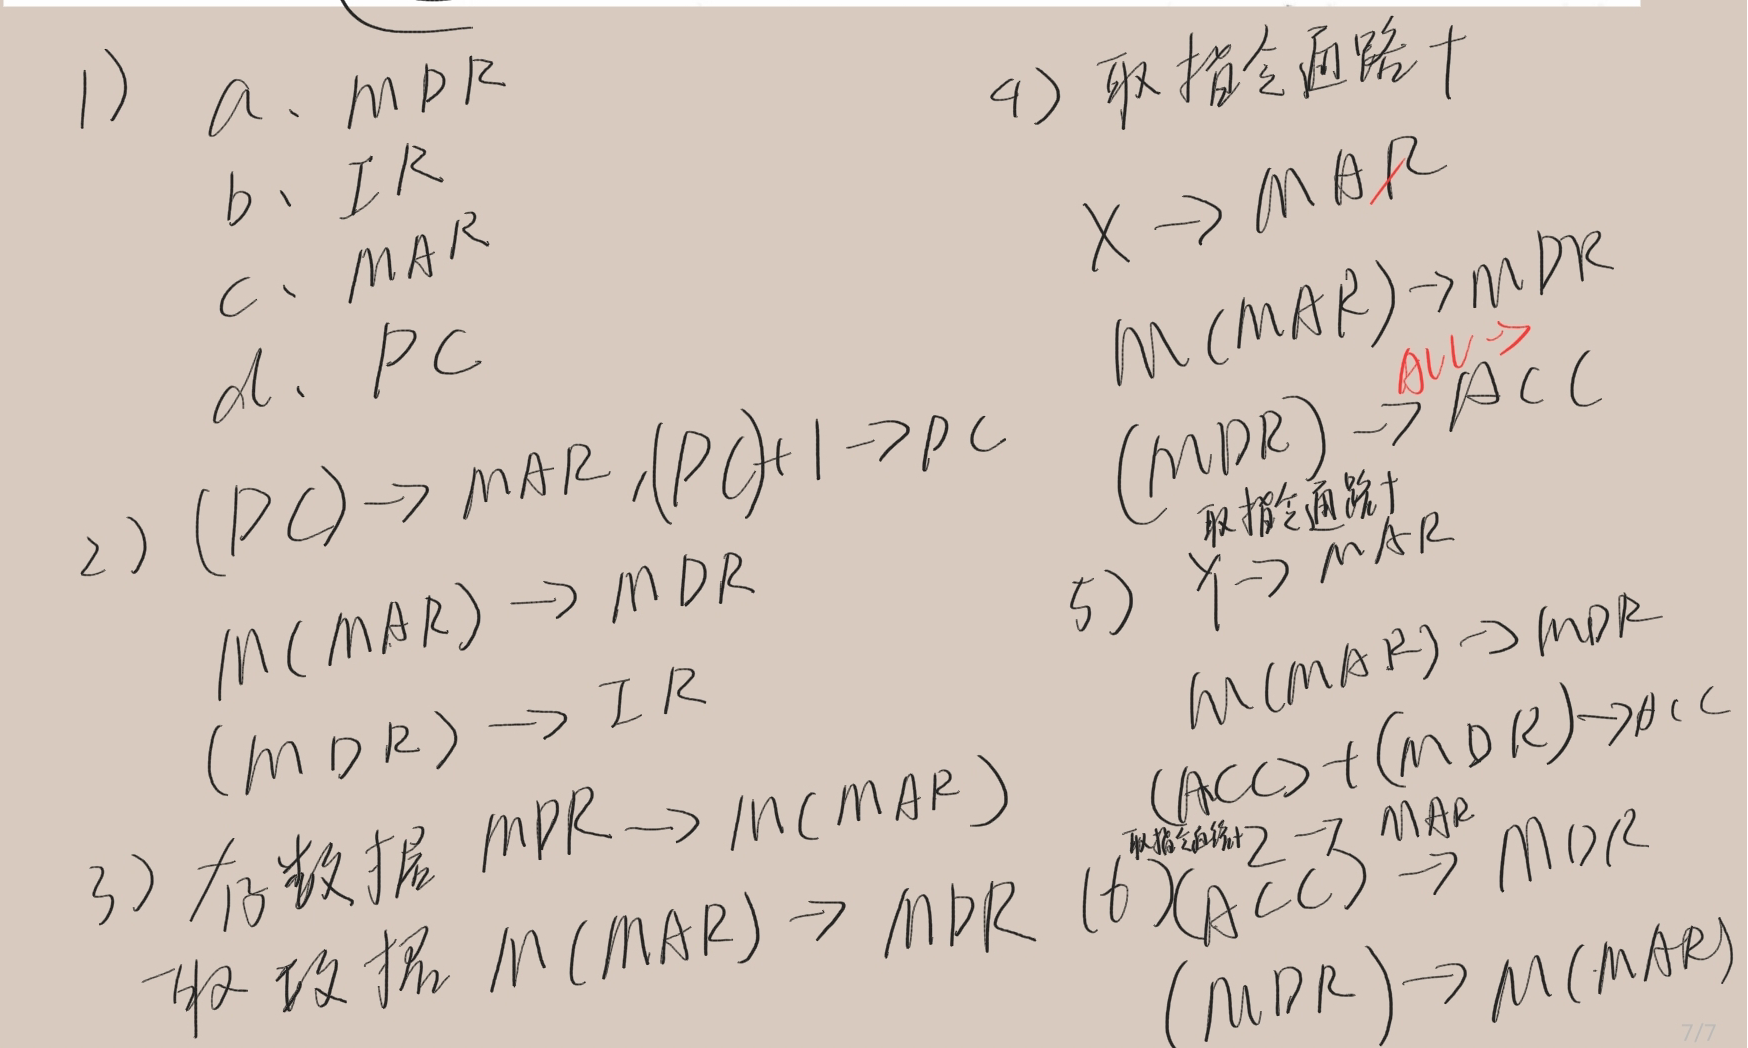 1) a、MDR
b、IR
c、MAR
d、PC
2) (PC)→MAR,(PC)+1→PC
M(MAR)→MDR
(MDR)→IR
3) 存数据 MDR→M(MAR)
取数据 M(MAR)→MDR
4) 取指令通路+
X→MAR
M(MAR)→MDR
ALU→
(MDR)→ACC
取指令通路+
5) Y→MAR
M(MAR)→MDR
(ACC)+(MDR)→ACC
取指令通路+ Z→MAR
(6) (ACC)→MDR
(MDR)→M(MAR)
7/7